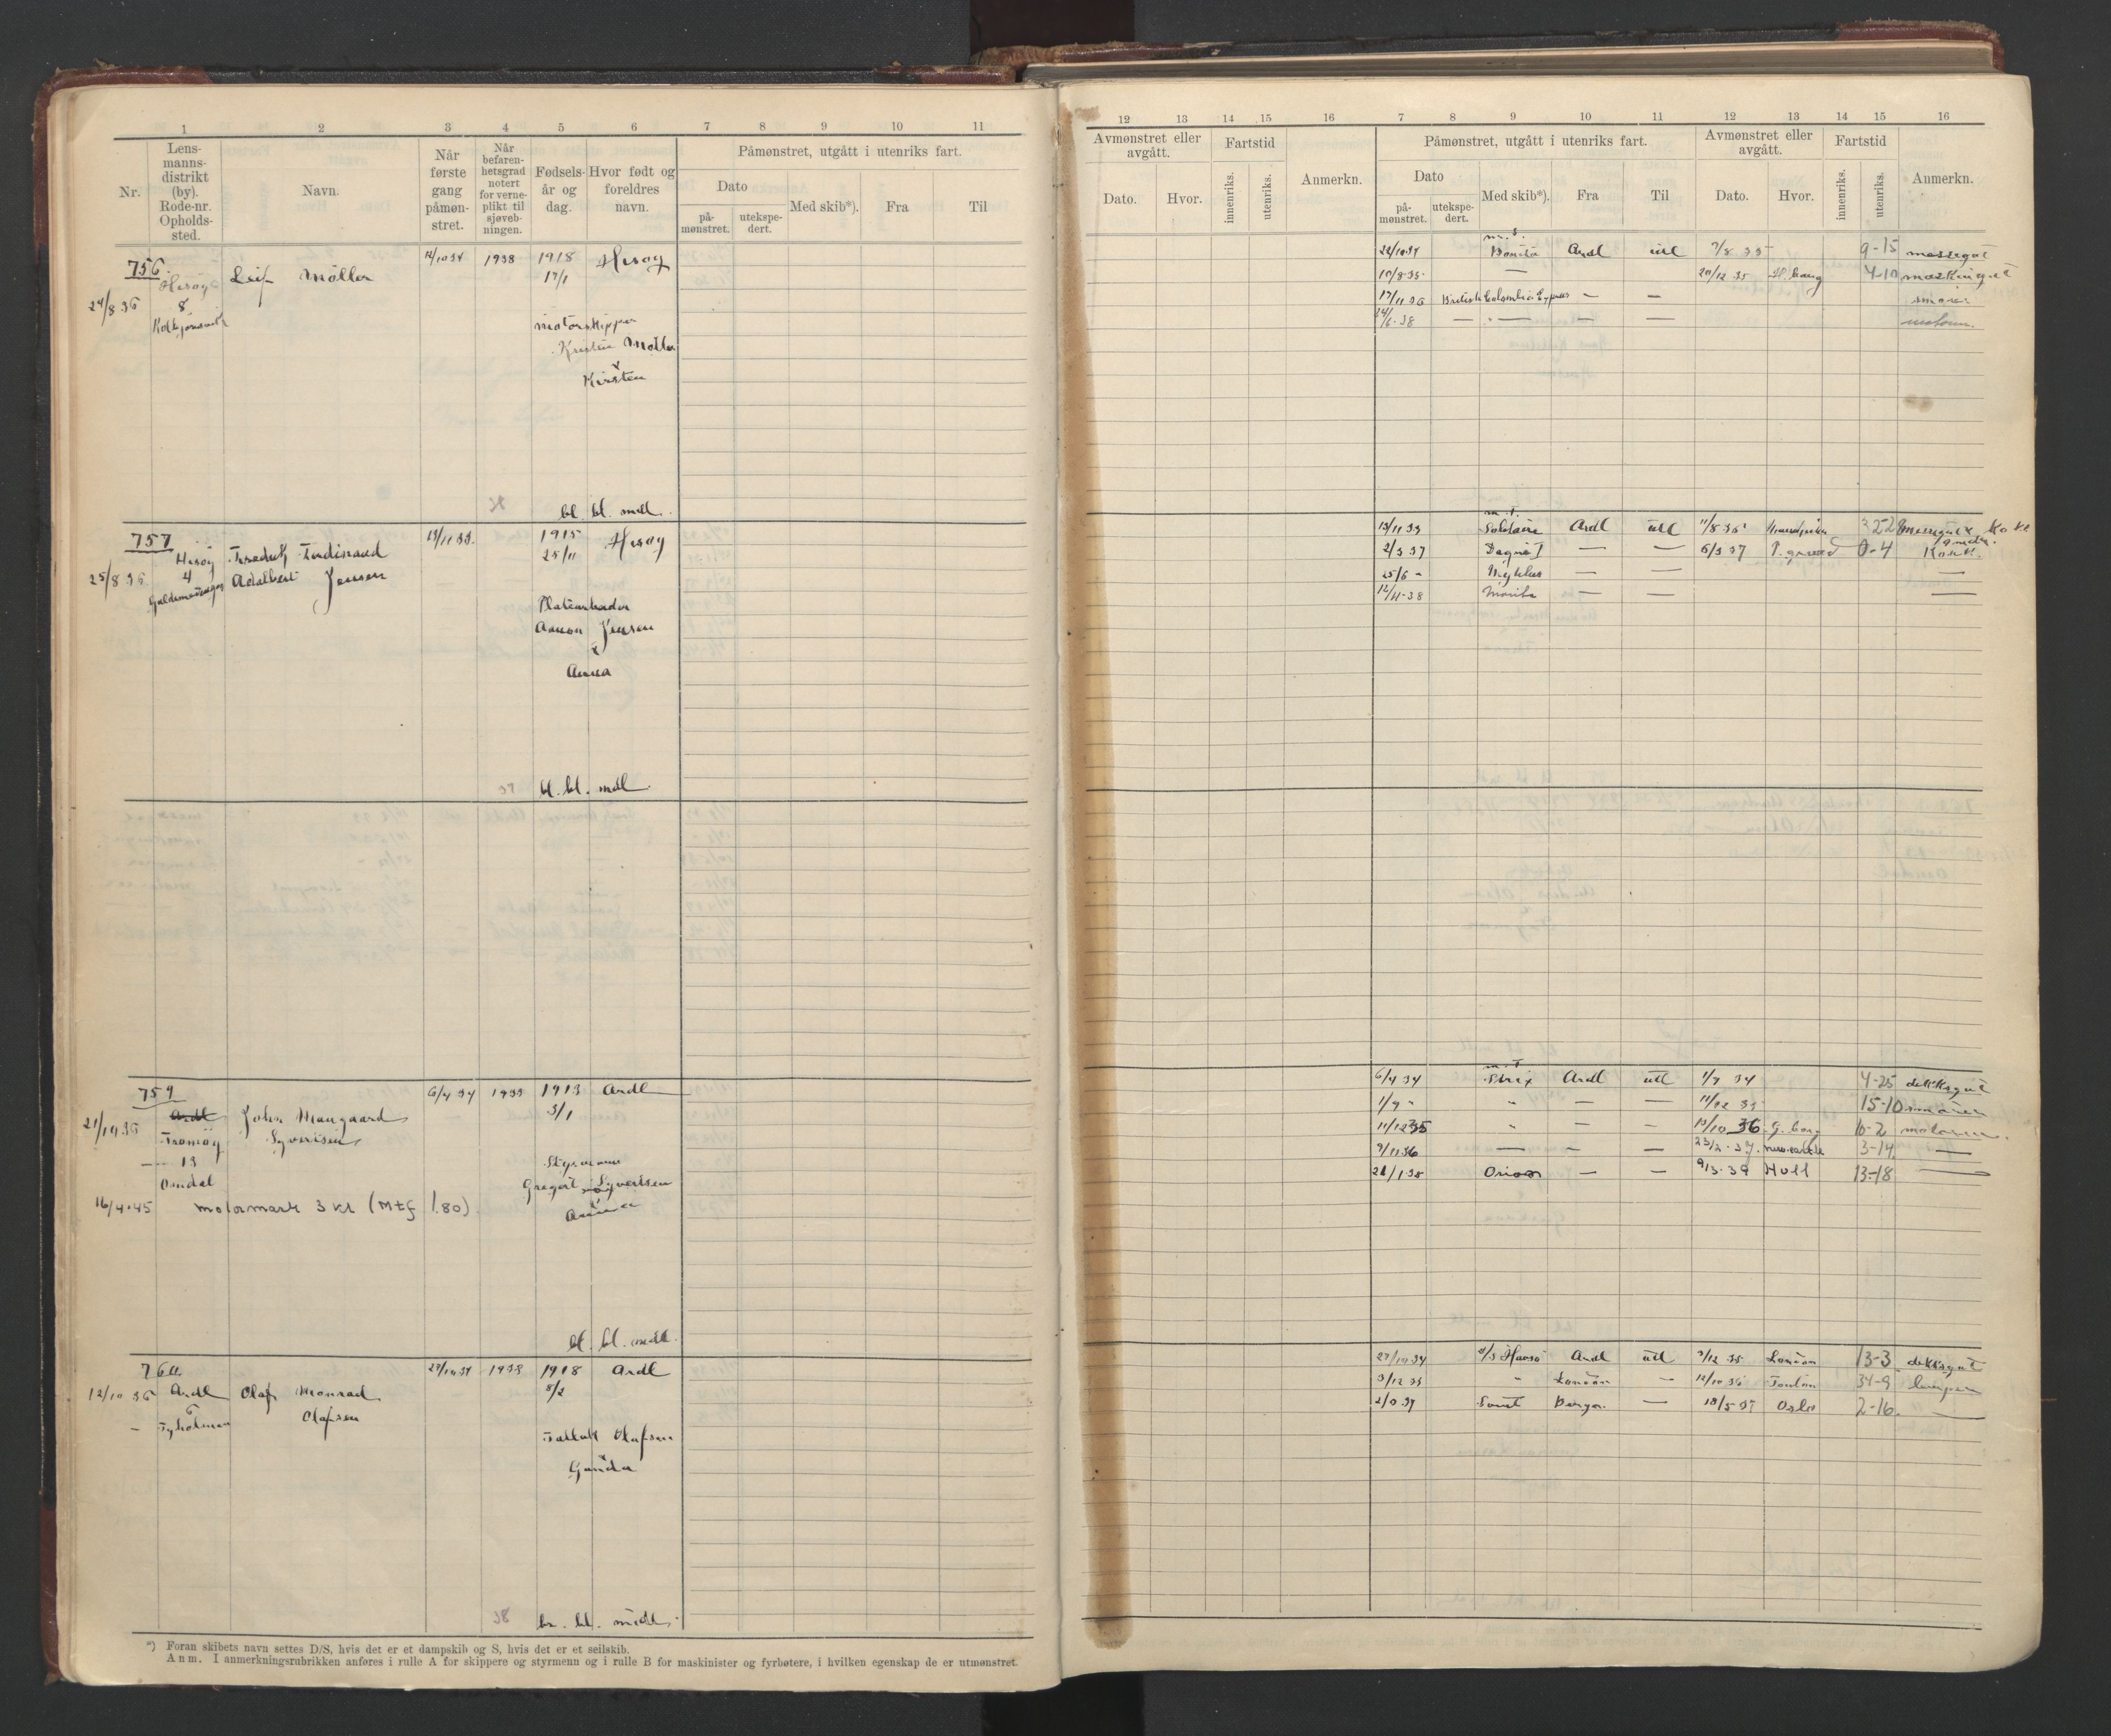 1 2 3 4 5 6 7 8 9 10 11
Nr.
Lens-
manns-
distrikt
(by).
Rode-nr.
Opholds-
sted.
Navn.
Når
første
gang
påmøn-
stret.
Når
befaren-
hetsgrad
notert
for verne-
plikt til
sjøveb-
ningen.
Fødsels-
år og
dag.
Hvor født og
foreldres
navn.
Påmønstret, utgått i utenriks fart.
Dato
på-
mønstret.
utekspe-
dert.
Med skib*).
Fra
Til
756.
24/8 36
Hisøy
8
Leif Møller
12/10 34
1938
1918
17/1
Hisøy
motorskipper
Møller
Kirsten
bl. bl. mdl.
757
25/8 36
Hisøy
4
Fredrik Ferdinand
Adalbert Jensen
13/11 33
1915
25/11
Hisøy
Jensen
Anna
37
bl. bl. mdl.
759
21/10 36
Ardl
Tromøy
— 13
Omdal
John Maugaard
Syvertsen
6/4 34
1933
1913
3/1
Ardl
Styrmann
Gregert Syvertsen
16/4.45 motormask 3 kl (Mtf 1.80)
bl. bl. mdl.
760
12/10 36
Ardl
Tyholmen
Olaf Monrad
Olafsen
27/10 34
1938
1918
8/2
Ardl
Olafsen
Gunda
38
bl. mdl.
*) Foran skibets navn settes D/S, hvis det er et dampskib og S, hvis det er et seilskib.
Anm. I anmerkningsrubrikken anføres i rulle A for skippere og styrmenn og i rulle B for maskinister og fyrbøtere, i hvilken egenskap de er utmønstret.
12 13 14 15 16 7 8 9 10 11 12 13 14 15 16
Avmønstret eller
avgått.
Dato.
Hvor.
Fartstid
innenriks.
utenriks.
Anmerkn.
Påmønstret, utgått i utenriks fart.
Dato
på-
mønstret.
utekspe-
dert.
Med skib*).
Fra
Til
Avmønstret eller
avgått.
Dato.
Hvor.
Fartstid
innenriks.
utenriks.
Anmerkn.
m.s.
22/10 34 Bonita Ardl utl 9/8 35 9-15 messegut
10/8 35 — 20/12 35 4-10 maskingut
17/11 36 British Colombia Express — — smører
24/6-38 — — — — motorm.
m.t.
13/11 33 Solitaire Ardl utl 11/8 36
2/3 37 Dagny I — — 6/3 37 0-4 Kokk.
25/6 - — — —
12/11-38 — — —
m.t.
6/4 34 Strix Ardl utl 1/9 34 4-25 dekksgut
1/9 " " — — 11/12 35 15-10 smører
11/12 35 " — — 13/10 36 G.borg 10-2 motorm.
9/11 36 — — — 23/2.37. Newcastle 3-14 —
21/1 38 Orion — — 9/3.39 Hull 13-18 —
27/10 34 Ardl utl 3/12 35 London 13-3 dekksgut
3/12 35 " London — 12/10 36 34-9
2/3 37 Bergen — 18/5 37 Oslo 2-16. —